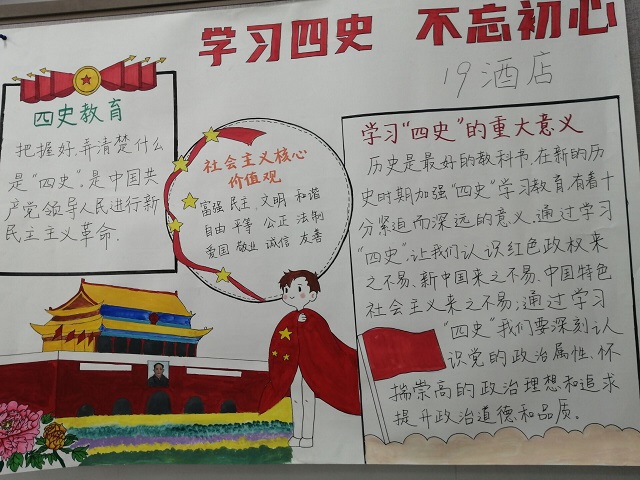 学习四史 不忘初心
19酒店
四史教育
把握好、弄清楚什么
是“四史”。是中国共
产党领导人民进行新
民主主义革命.
社会主义核心
价值观
富强 民主 文明 和谐
自由 平等 公正 法制
爱国 敬业 诚信 友善
学习“四史”的重大意义
历史是最好的教科书,在新的历
史时期加强“四史”学习教育,有着十
分紧迫而深远的意义。通过学习
“四史”,让我们认识红色政权来
之不易、新中国来之不易、中国特色
社会主义来之不易;通过学习
“四史”我们要深刻认
识党的政治属性、怀
揣崇高的政治理想和追求
提升政治道德和品质。